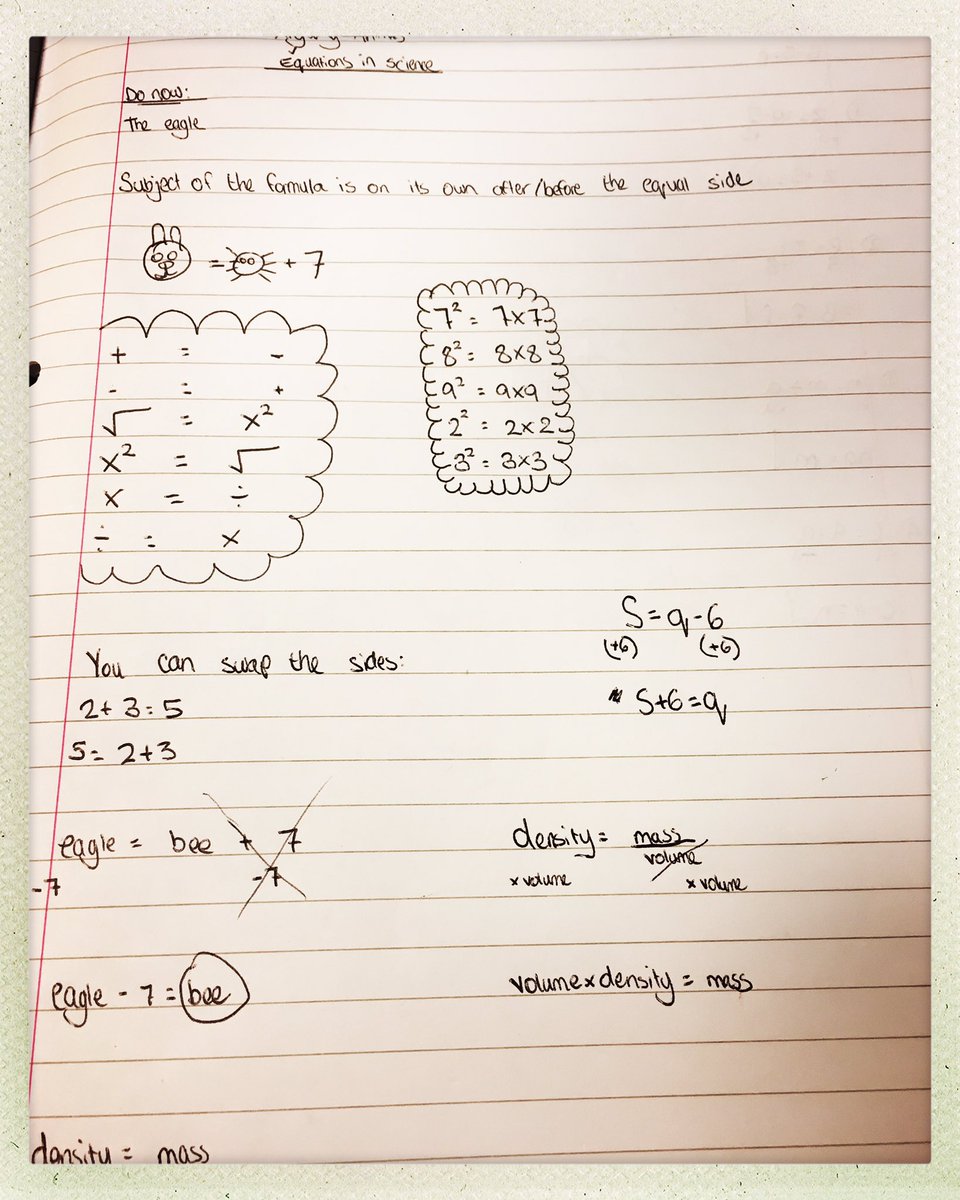 Equations in science
Do now:
The eagle
Subject of the formula is on its own after/before the equal side
= + 7
+ = -
- = +
√ = x²
x² = √
x = ÷
÷ = x
7² = 7x7
8² = 8x8
9² = 9x9
2² = 2x2
3² = 3x3
You can swap the sides:
2+3=5
5=2+3
S=q-6
(+6) (+6)
S+6=q
eagle = bee + 7
-7 -7
eagle - 7 = bee
density = mass
volume
x volume x volume
volume x density = mass
density = mass